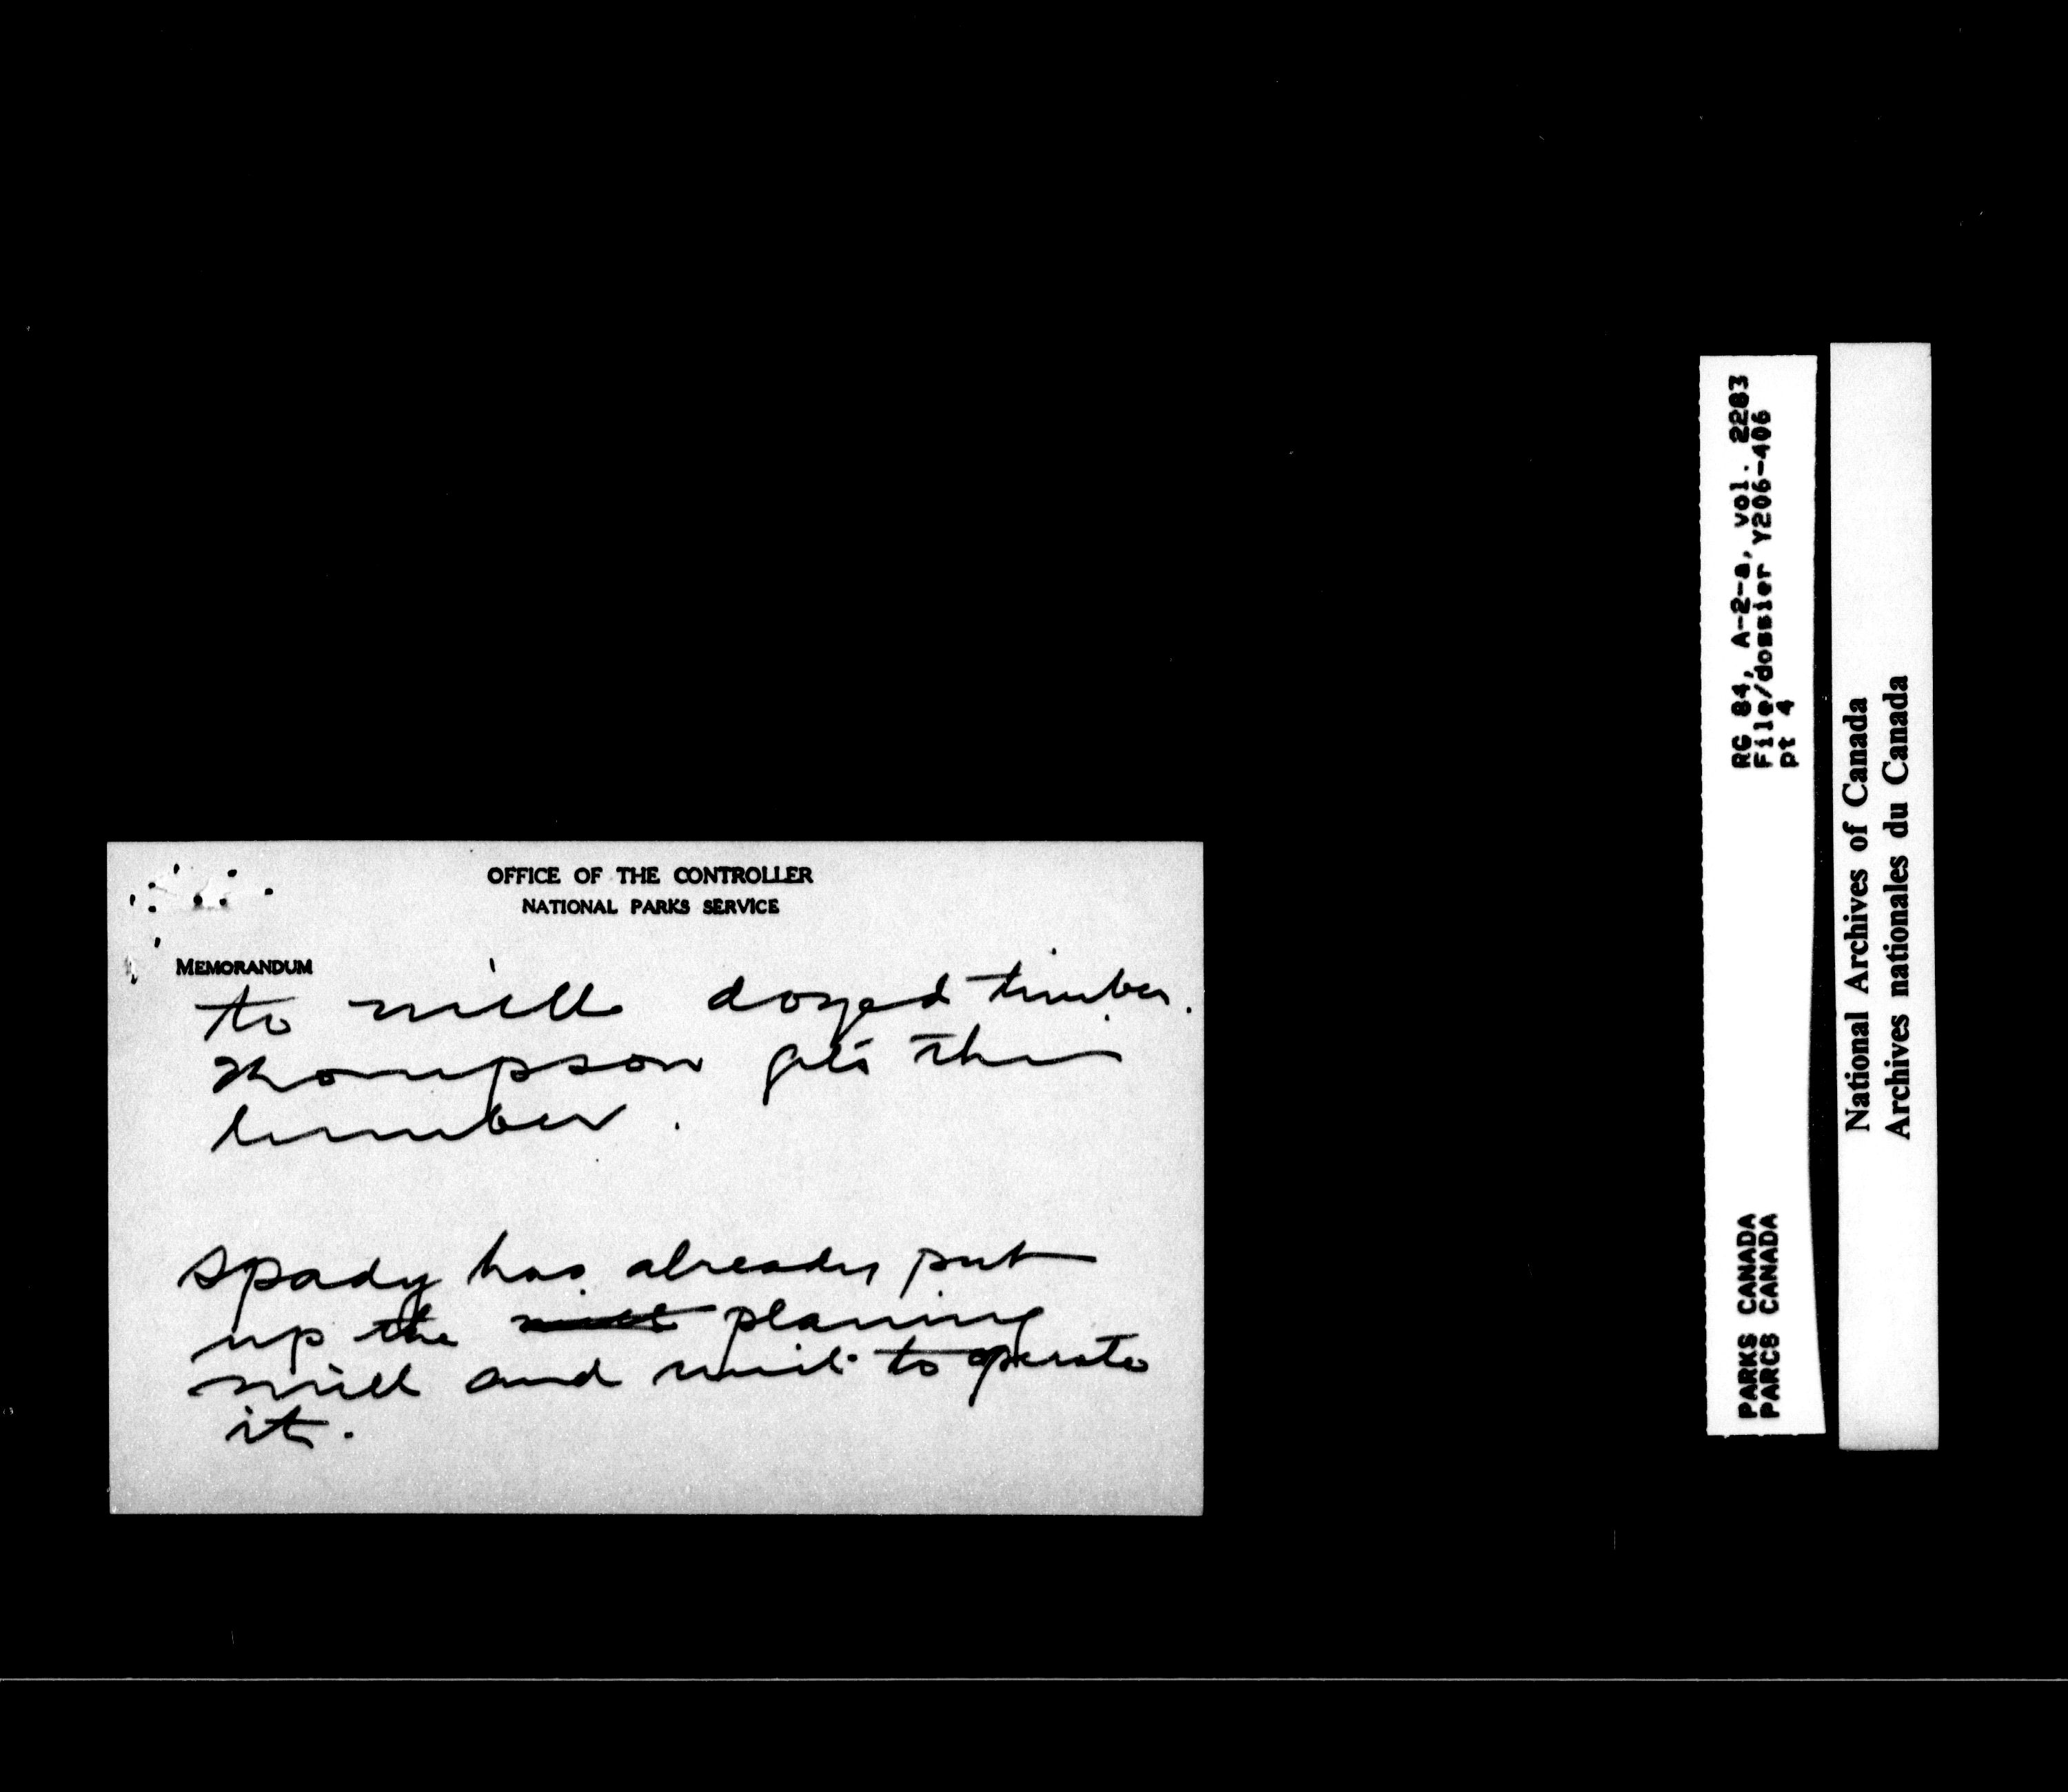 OFFICE OF THE CONTROLLER
NATIONAL PARKS SERVICE
MEMORANDUM
to mill dozed timber.
Thompson gets this
lumber.
Spady has already put
up the mill planing
mill and to operate
it.
RG 84, A-2-a, vol. 2283
File/dossier Y206-406
pt 4
PARKS CANADA
PARCS CANADA
National Archives of Canada
Archives nationales du Canada